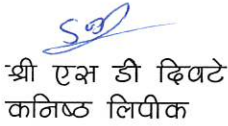 श्री एस डी दिवटे
कनिष्ठ लिपीक